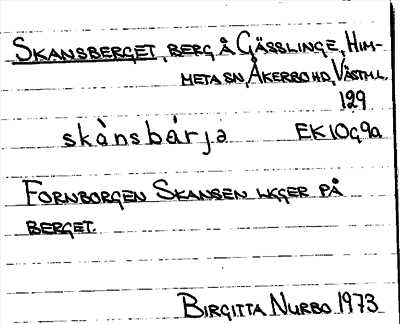 SKANSBERGET, BERG Å GÄSSLINGE, HIM-
META SN, ÅKERBO HD, VÄSTML.
129
skànsbárja EK10G9a
FORNBORGEN SKANSEN LIGGER PÅ
BERGET.
BIRGITTA NURBO 1973